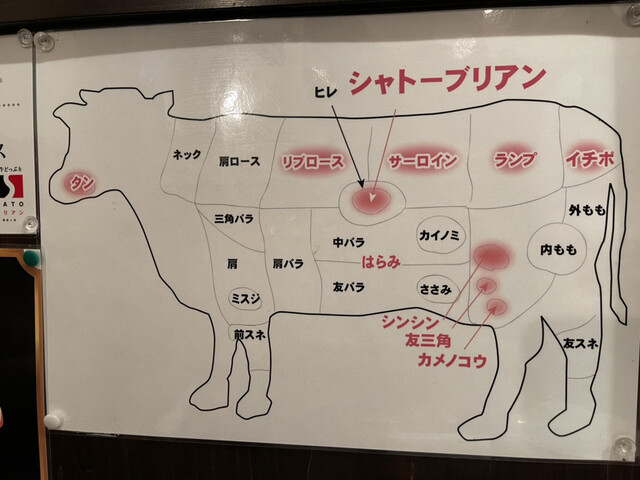 シャトーブリアン
ヒレ
ネック
肩ロース
リブロース
サーロイン
ランプ
イチボ
タン
三角バラ
中バラ
カイノミ
外もも
内もも
肩
肩バラ
はらみ
友バラ
ささみ
ミスジ
シンシン
友三角
カメノコウ
前スネ
友スネ
ATO
リアン